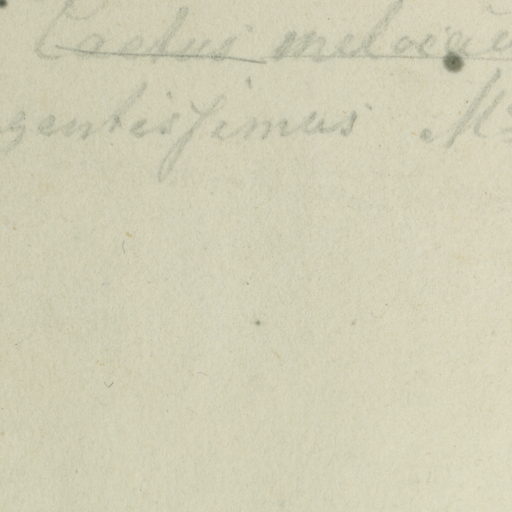 Cactus meloca
gentissimus M